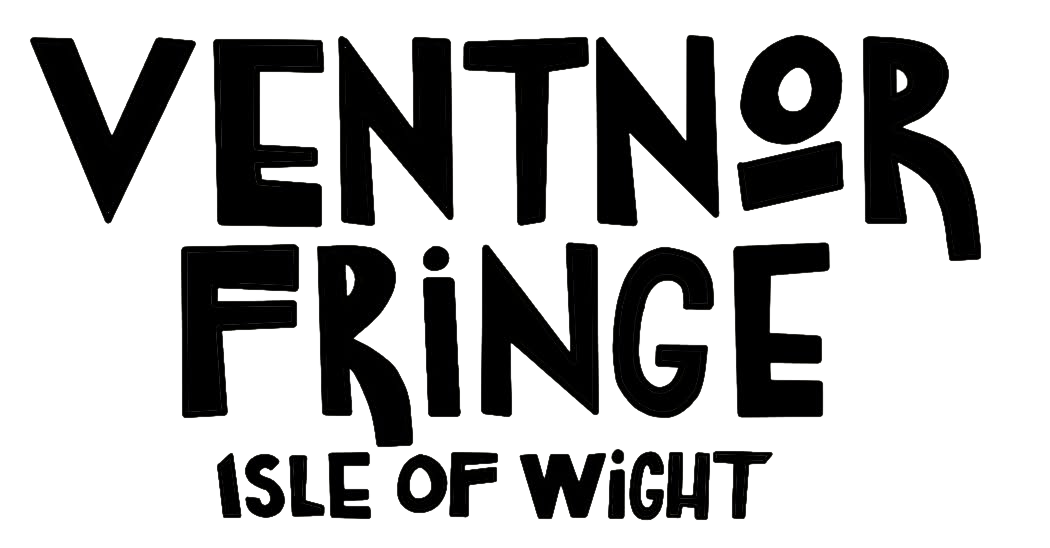 VENTNOR
FRiNGE
ISLE OF WiGHT